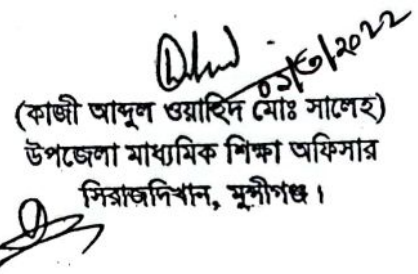 ০১/৩/২০২২
(কাজী আব্দুল ওয়াহিদ মোঃ সালেহ)
উপজেলা মাধ্যমিক শিক্ষা অফিসার
সিরাজদিখান, মুন্সীগঞ্জ।